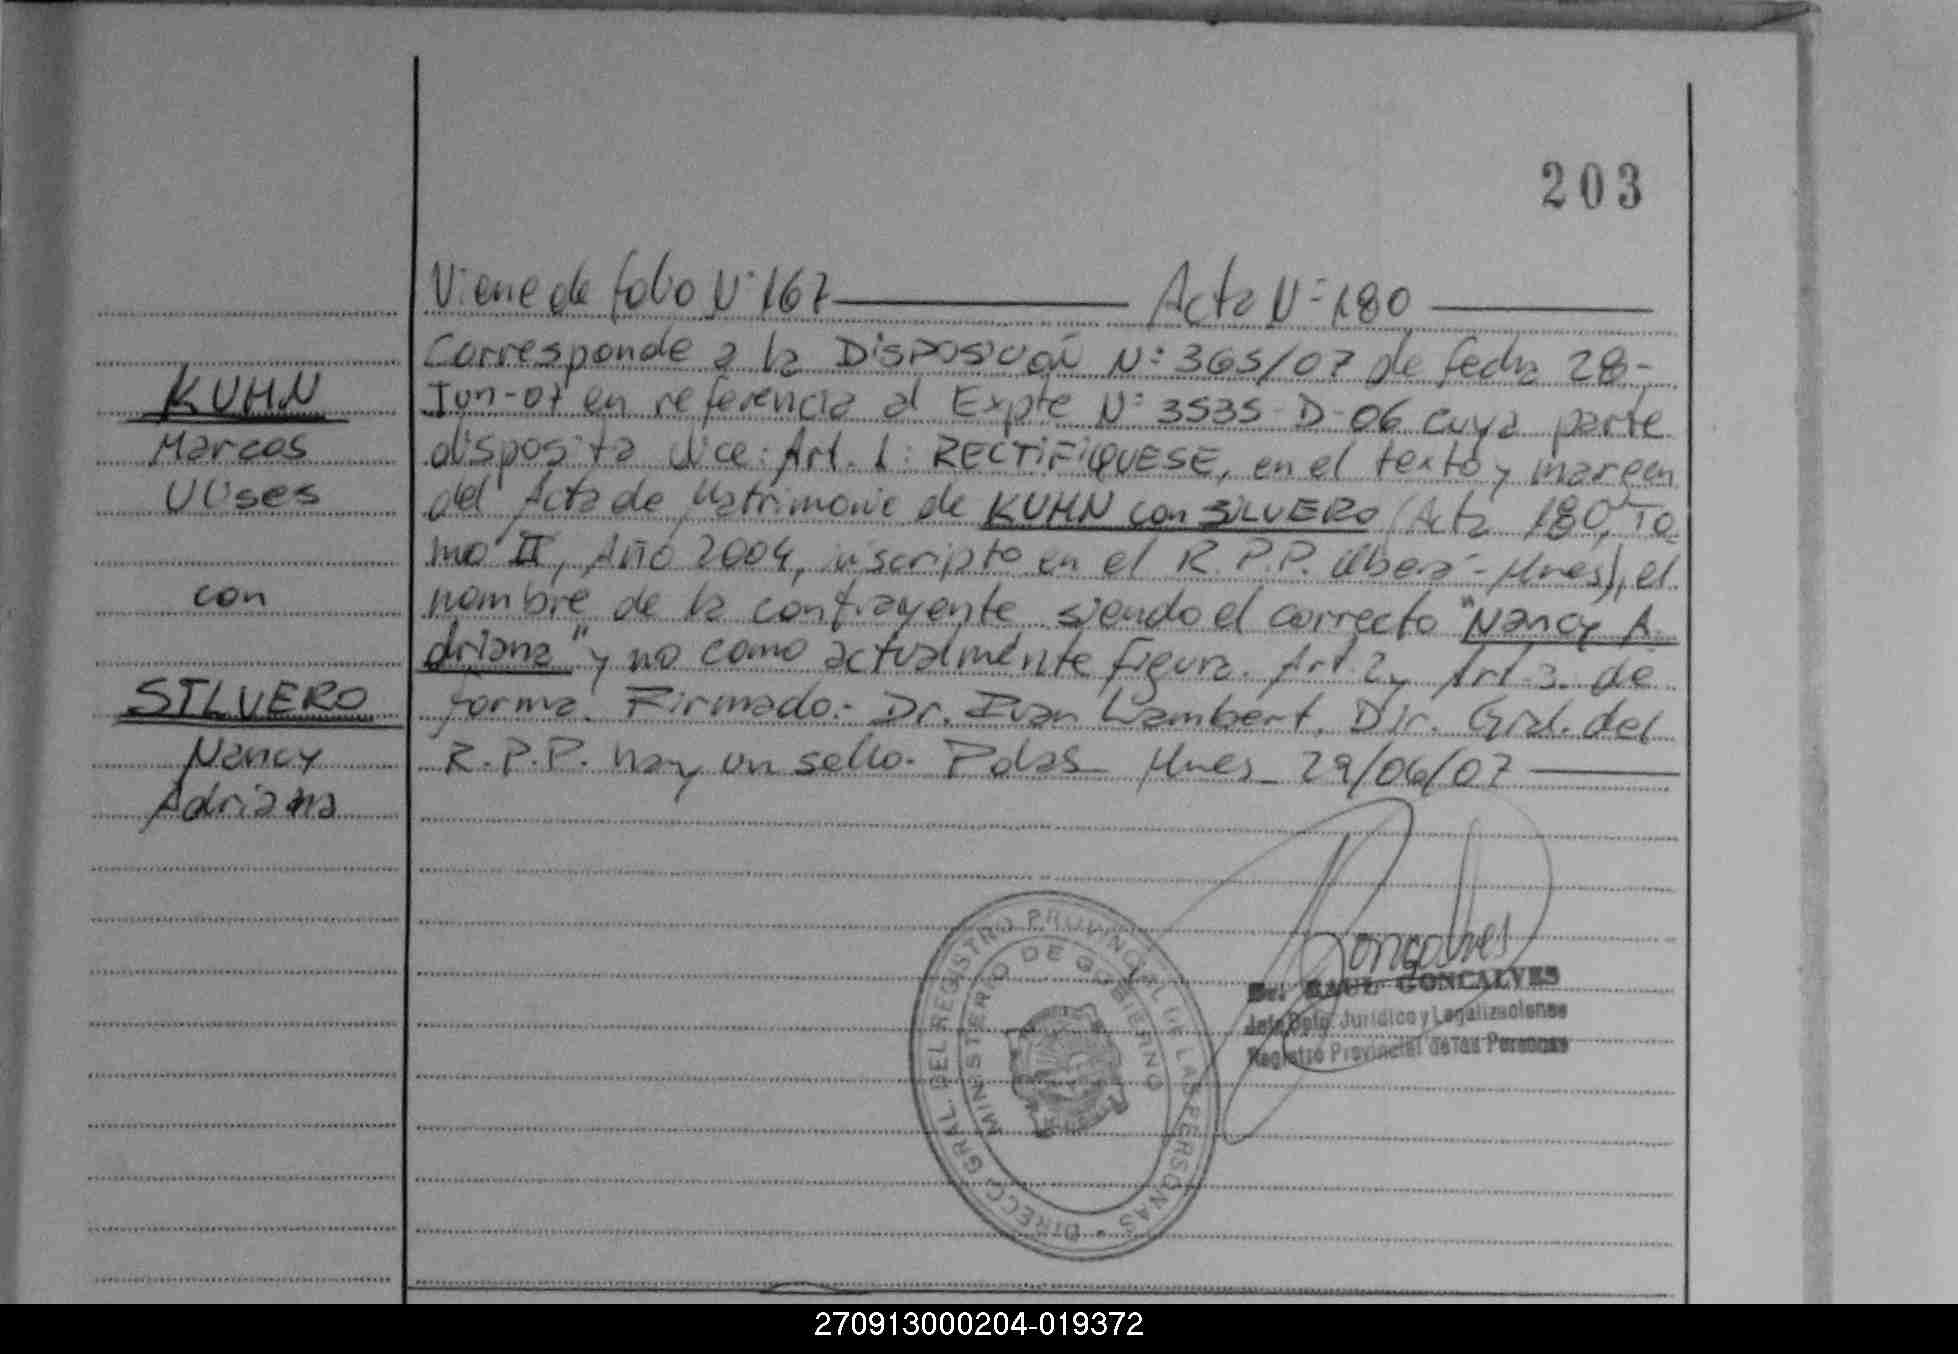 203
Viene de folio Nº 167 Acta Nº 180
Corresponde a la Disposición Nº 365/07 de fecha 28-
Jun-07 en referencia al Expte Nº 3535-D-06 cuya parte
dispositiva dice: Art. 1: RECTIFIQUESE, en el texto y margen
del Acta de Matrimonio de KUHN con SILVERO (Acta 180, To
mo II, Año 2004, inscripto en el R.P.P. Oberá-Mnes), el
nombre de la contrayente siendo el correcto "Nancy A
driana" y no como actualmente figura. Art. 2 y Art. 3. de
forma. Firmado.- Dr. Ivan Lambert, Dir. Gral. del
R.P.P. hay un sello. Pdas Mnes 29/06/07
KUHN
Marcos
Ulises
con
SILVERO
Nancy
Adriana
Goncalves
Dr. RAUL GONCALVES
Jefe Dpto. Jurídico y Legalizaciones
Registro Provincial de las Personas
DIRECC. GRAL. DEL REGISTRO PROVINCIAL DE LAS PERSONAS
MINISTERIO DE GOBIERNO
270913000204-019372